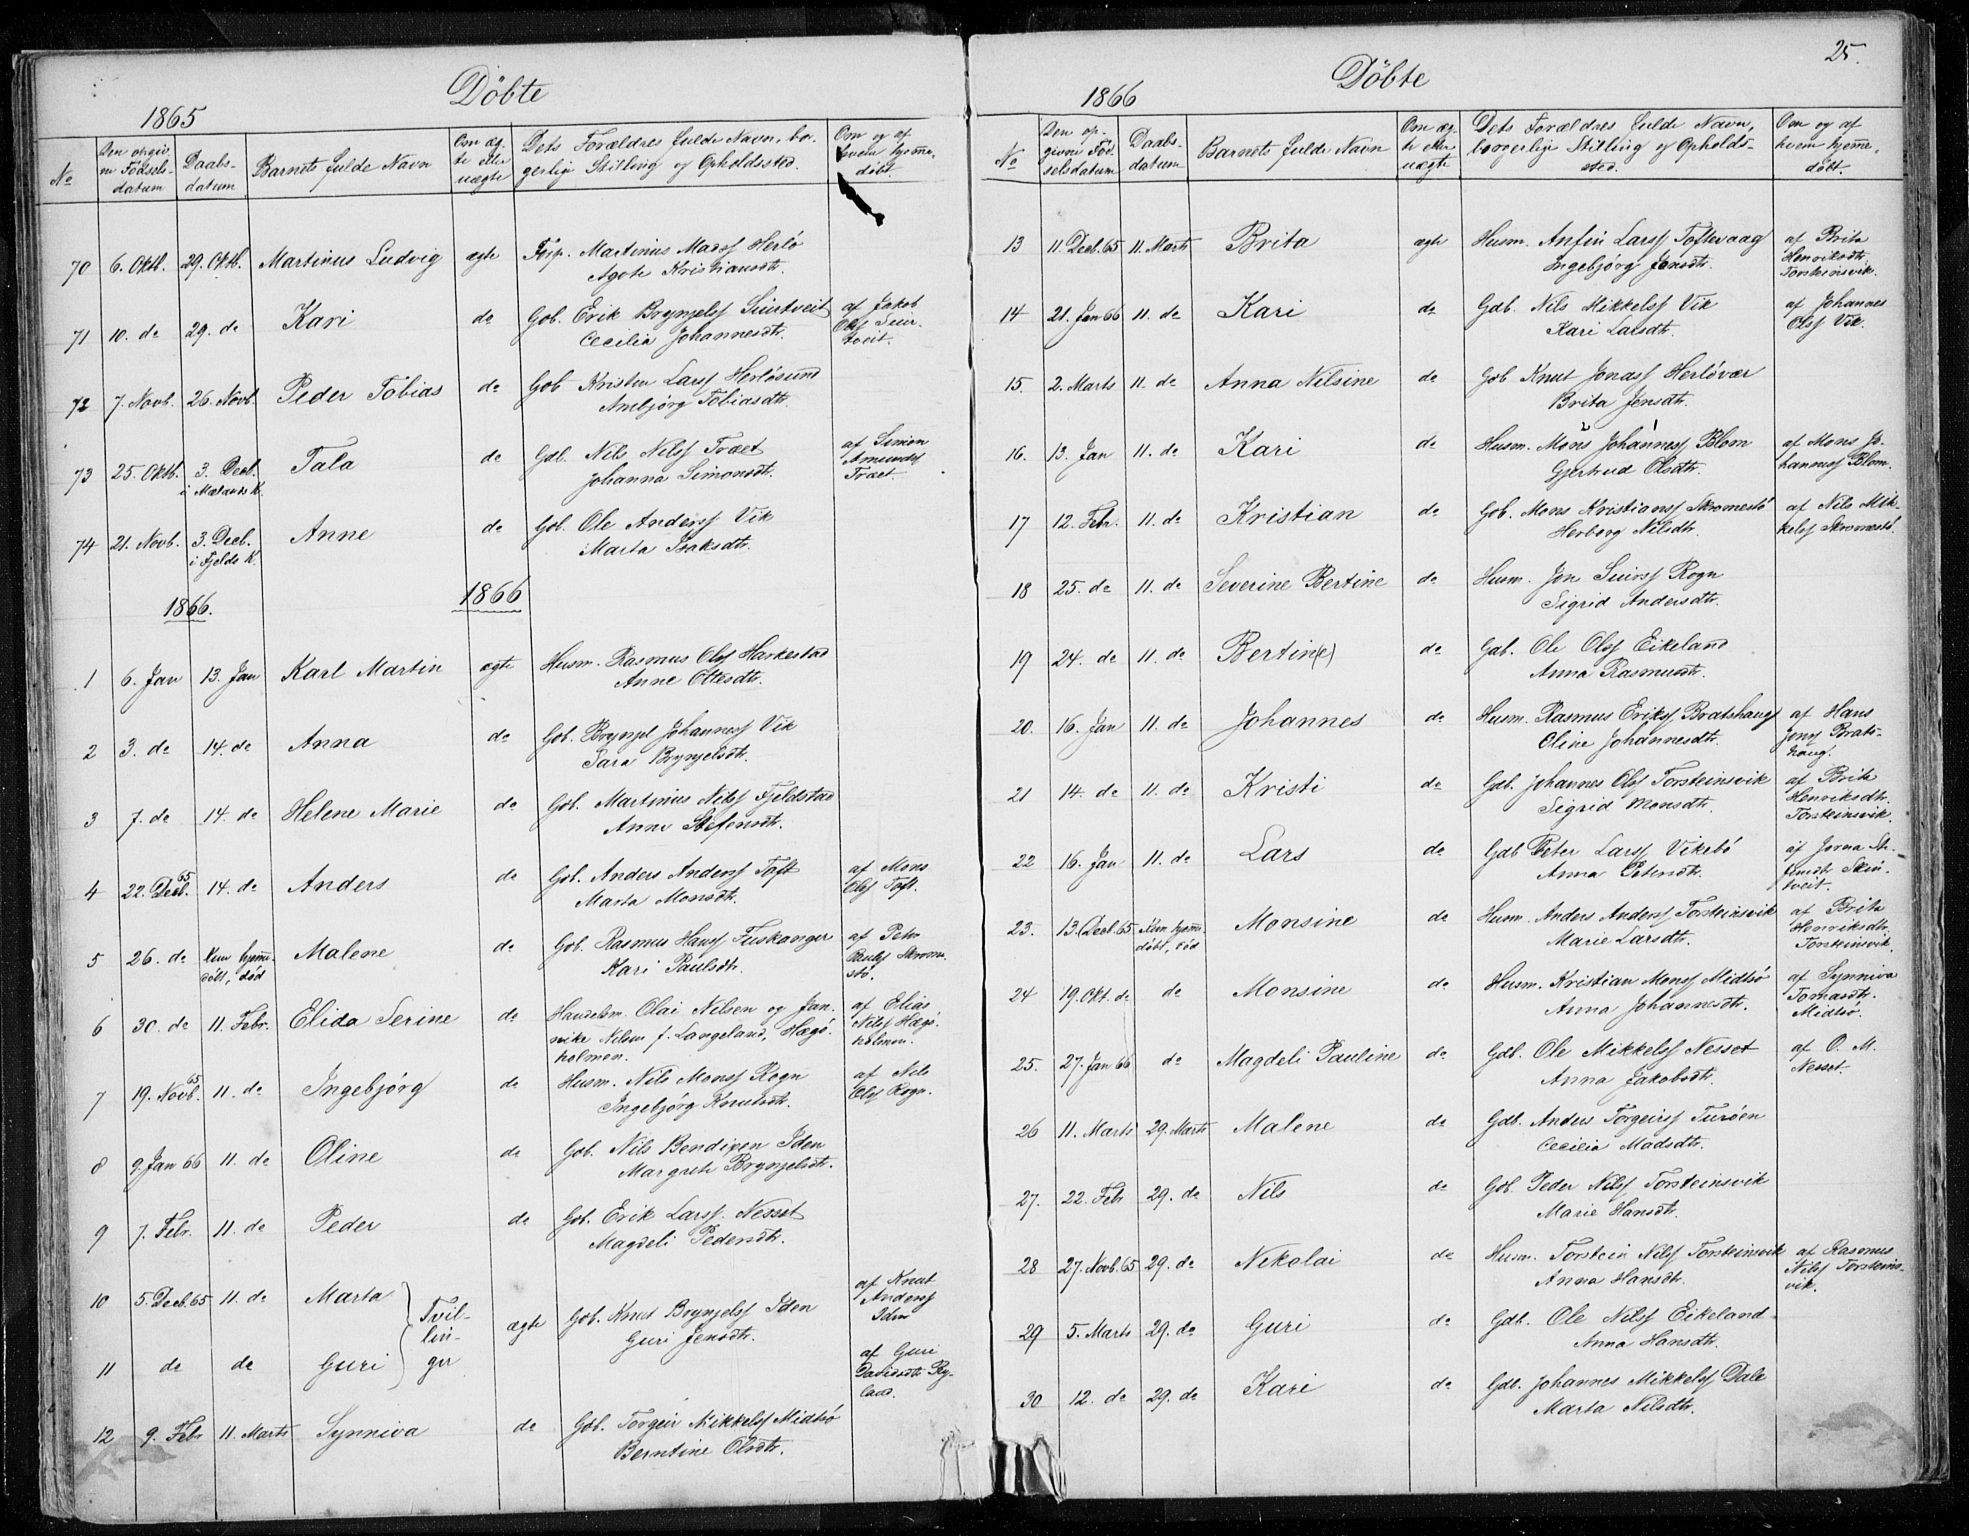 Döbte
1865
No | Den opgiv- ne Födsels- datum | Daabs- datum | Barnets fulde Navn | Om æg- te eller uægte | Dets Forældres fulde Navn, bo- gerlige Stilling og Opholdssted. | Om og af hvem hjemme- döbt.
70 6. Oktb. 29. Oktb. Martinus Ludvig ægte Martinus Madss Herlö
Agote Kristiansdtr.
71 10. do 29. do Kari do Gdb. Erik Brynjelss Suirtveit af Jakob
Cecilia Johannesdtr. Olss Suir-
tveit.
72 7. Novb. 26. Novb. Peder Tobias do Gdb Kristen Larss Herlösund
Ambjörg Tobiasdtr.
73 25. Oktb. 3. Decb. Tala do Gdb. Nils Nilss Træet af Simon
i Mælands K. Johanna Simonsdtr. Amundss
Træet.
74 21. Novb. 3. Decb. Anne do Gdb. Ole Anderss Vik
i Fjelds K. Marta Isaksdtr.
1866. 1866
1 6. Jan 13. Jan Karl Martin ægte Husm. Rasmus Olss Harkestad
Anne Ottesdtr.
2 3. do 14. do Anna do Gdb. Brynjel Johanness Vik
Sara Brynjelsdtr.
3 7. do 14. do Helene Marie do Gdb. Martinus Nilss Fjeldstad
Anne Stefensdtr.
4 22. Decb. 65 14. do Anders do Gdb. Anders Anderss Toft af Mons
Marta Monsdtr. Olss Toft.
5 26. do Kun hjemme- Malene do Gdb. Rasmus Hanss Fuskanger af Peter
döbt, död Kari Paulsdtr. Paulss Skrome-
stö.
6 30. do 11. Febr. Elida Serine do Handelsm. Olai Nilsen og Jan- af Elias
nike Nilsen f. Langeland, Hægö- Nilss Hægö-
holmen. holmen.
7 19. Novb. 65 11. do Ingebjörg do Husm. Nils Monss Rogn af Nils
Ingebjörg Knutsdtr. Olss Rogn.
8 9. Jan 66 11. do Oline do Gdb. Nils Bendixen Iden
Margrete Brynjelsdtr.
9 7. Febr. 11. do Peder do Gdb. Erik Larss. Nesset
Magdeli Pedersdtr.
10 5. Decb. 65 11. do Marta Tvil- ægte Gdb. Knut Brynjelss Iden af Knut
lin- Guri Jensdtr. Anderss
Iden
11 do do Guri ger af Guri
Davidsdtr. Ry-
land.
12 9. Febr 11. Marts Synniva do Gdb. Torgeir Mikkelss Midtsö
Berntine Olsdtr.
25.
Döbte
1866
No | Den op- givne Föd- selsdatum | Daabs- datum. | Barnets fulde Navn | Om æg- te eller uægte | Dets Forældres fulde Navn, borgerlige Stilling og Opholds- sted. | Om og af hvem hjemme- döbt.
13 11. Decb. 65 11. Marts Brita ægte Husm. Anfin Larss Toftevaag af Brita
Ingebjörg Jensdtr. Henriksdtr.
Torsteinsvik.
14 21. Jan 66 11. do Kari do Gdb. Nils Mikkelss Vik af Johannes
Kari Larsdtr. Olss Vik.
15. 2. Marts 11. do Anna Nilsine do Gdb Knut Jonass Herlövær
Brita Jensdtr.
16. 13. Jan 11. do Kari do Husm. Mons Johanness Blom af Mons Jo-
Gjertrud Olsdtr. hanness Blom.
17 12. Febr. 11. do Kristian do Gdb. Mons Kristianss Skromestö af Nils Mik-
Herborg Nilsdtr. kelss Skromestö.
18 25. do 11. do Severine Bertine do Husm. Jon Suirss Rogn
Sigrid Andersdtr.
19 24. do 11. do Bertin(e) do Gdb. Ole Olss Eikeland
Anna Rasmusdtr.
20. 16. Jan 11. do Johannes do Husm. Rasmus Erikss Bratshaug af Hans
Oline Johannesdtr. Jenss Brats-
haug.
21 14. do 11. do Kristi do Gdb. Johannes Olss Torsteinsvik af Brita
Sigrid Monsdtr. Henriksdtr.
Torsteinsvik.
22 16. Jan 11. do Lars do Gdb Peter Larss Vikebö
Anna Petersdtr.
23. 13. Decb. 65 Kun hjemme- Monsine do Husm. Anders Anderss Torsteinsvik af Brita
döbt, död Marie Larsdtr. Henriksdtr.
Torsteinsvik.
24 19. Okt. do do Monsine do Husm. Kristian Monss Midtsö af Synniva
Anna Johannesdtr. Tomasdtr.
Midtsö.
25. 27. Jan 66 do Magdeli Pauline do Gdb. Ole Mikkelss Nesset af O. M.
Anna Jakobsdtr. Nesset.
26 11. Marts 29. Marts Malene do Gdb. Anders Torgeirss Turöen
Cecilia Madsdtr.
27. 22. Febr 29. do Nils do Gdb. Peder Nilss Torsteinsvik
Marie Hansdtr.
28 27. Novb. 65 29. do Nikolai do Husm. Torstein Nilss Torsteinsvik af Rasmus
Anna Hansdtr. Nilss Torsteins-
vik.
29 5. Marts 29. do Guri do Gdb. Ole Nilss Eikeland
Anna Hansdtr.
30 12. do 29. do Kari do Gdb. Johannes Mikkelss Dale
Marta Nilsdtr.